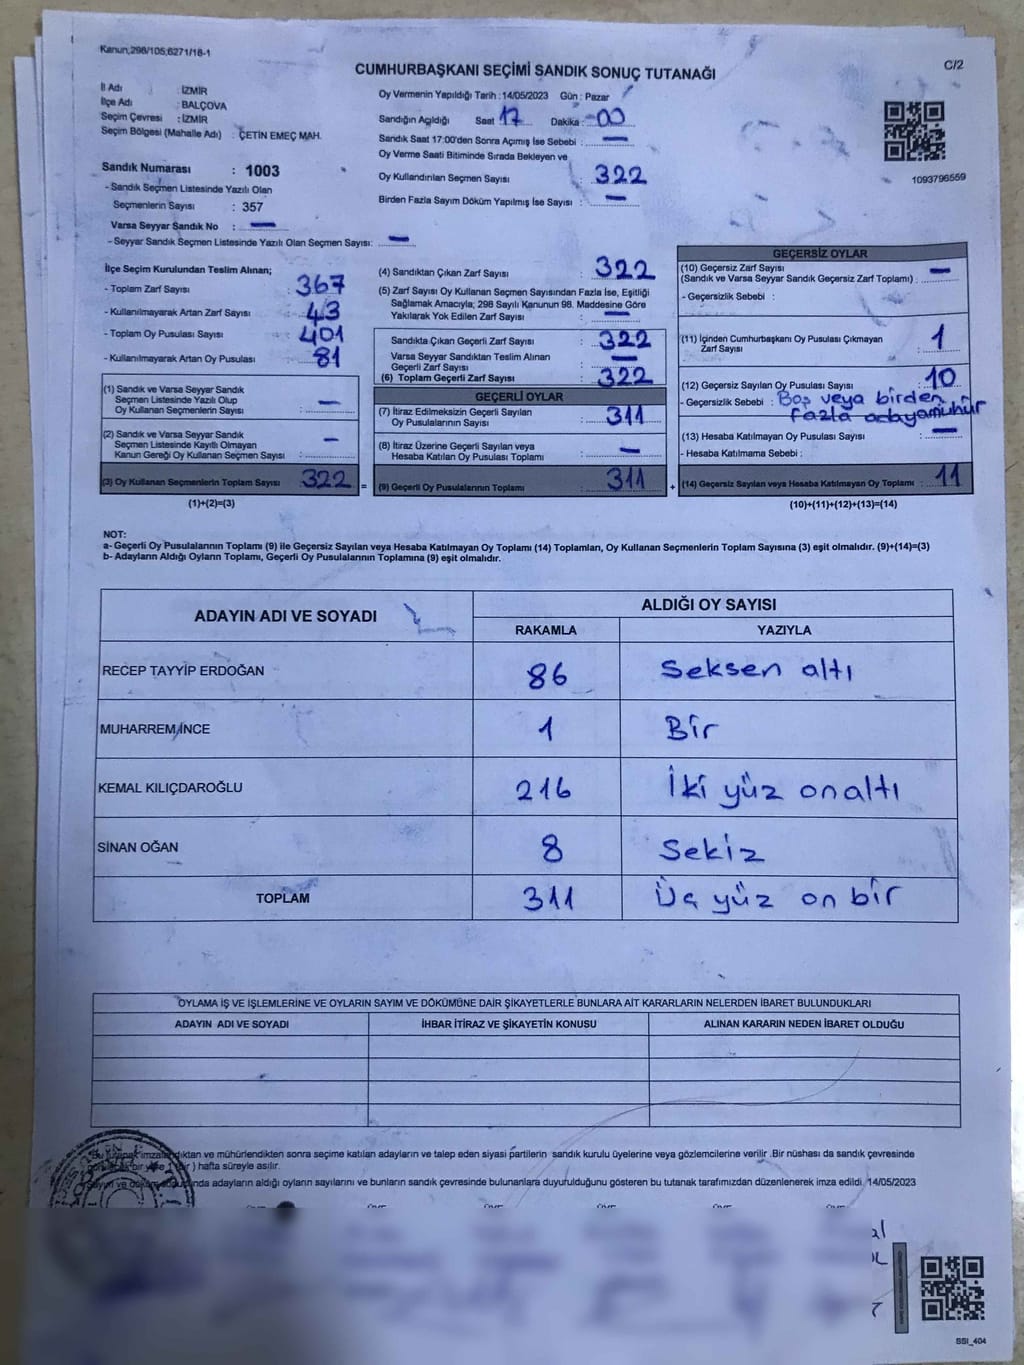 Kanun;298/105;6271/18-1
C/2
CUMHURBAŞKANI SEÇİMİ SANDIK SONUÇ TUTANAĞI
İl Adı : İZMİR
İlçe Adı : BALÇOVA
Seçim Çevresi : İZMİR
Seçim Bölgesi (Mahalle Adı) : ÇETİN EMEÇ MAH.
Sandık Numarası : 1003
- Sandık Seçmen Listesinde Yazılı Olan
Seçmenlerin Sayısı : 357
Varsa Seyyar Sandık No : —
- Seyyar Sandık Seçmen Listesinde Yazılı Olan Seçmen Sayısı: —
Oy Vermenin Yapıldığı Tarih : 14/05/2023 Gün : Pazar
Sandığın Açıldığı Saat : 17 Dakika : 00
Sandık Saat 17:00'den Sonra Açımış İse Sebebi : —
Oy Verme Saati Bitiminde Sırada Bekleyen ve
Oy Kullandırılan Seçmen Sayısı : 322
Birden Fazla Sayım Döküm Yapılmış İse Sayısı : —
1093796559
İlçe Seçim Kurulundan Teslim Alınan;
- Toplam Zarf Sayısı : 367
- Kullanılmayarak Artan Zarf Sayısı : 43
- Toplam Oy Pusulası Sayısı : 401
- Kullanılmayarak Artan Oy Pusulası : 81
(1) Sandık ve Varsa Seyyar Sandık
Seçmen Listesinde Yazılı Olup
Oy Kullanan Seçmenlerin Sayısı : —
(2) Sandık ve Varsa Seyyar Sandık
Seçmen Listesinde Kayıtlı Olmayan
Kanun Gereği Oy Kullanan Seçmen Sayısı : —
(3) Oy Kullanan Seçmenlerin Toplam Sayısı : 322 =
(1)+(2)=(3)
(4) Sandıktan Çıkan Zarf Sayısı : 322
(5) Zarf Sayısı Oy Kullanan Seçmen Sayısından Fazla İse, Eşitliği
Sağlamak Amacıyla; 298 Sayılı Kanunun 98. Maddesine Göre
Yakılarak Yok Edilen Zarf Sayısı : —
Sandıkta Çıkan Geçerli Zarf Sayısı : 322
Varsa Seyyar Sandıktan Teslim Alınan
Geçerli Zarf Sayısı : —
(6) Toplam Geçerli Zarf Sayısı : 322
GEÇERLİ OYLAR
(7) İtiraz Edilmeksizin Geçerli Sayılan
Oy Pusulalarının Sayısı : 311
(8) İtiraz Üzerine Geçerli Sayılan veya
Hesaba Katılan Oy Pusulası Toplamı : —
(9) Geçerli Oy Pusulalarının Toplamı : 311 +
GEÇERSİZ OYLAR
(10) Geçersiz Zarf Sayısı
(Sandık ve Varsa Seyyar Sandık Geçersiz Zarf Toplamı) : —
- Geçersizlik Sebebi :
(11) İçinden Cumhurbaşkanı Oy Pusulası Çıkmayan
Zarf Sayısı : 1
(12) Geçersiz Sayılan Oy Pusulası Sayısı : 10
- Geçersizlik Sebebi : Boş veya birden
fazla adaya mühür
(13) Hesaba Katılmayan Oy Pusulası Sayısı : —
- Hesaba Katılmama Sebebi :
(14) Geçersiz Sayılan veya Hesaba Katılmayan Oy Toplamı : 11
(10)+(11)+(12)+(13)=(14)
NOT:
a- Geçerli Oy Pusulalarının Toplamı (9) ile Geçersiz Sayılan veya Hesaba Katılmayan Oy Toplamı (14) Toplamları, Oy Kullanan Seçmenlerin Toplam Sayısına (3) eşit olmalıdır. (9)+(14)=(3)
b- Adayların Aldığı Oyların Toplamı, Geçerli Oy Pusulalarının Toplamına (9) eşit olmalıdır.
ADAYIN ADI VE SOYADI ALDIĞI OY SAYISI
RAKAMLA YAZIYLA
RECEP TAYYİP ERDOĞAN 86 Seksen altı
MUHARREM İNCE 1 Bir
KEMAL KILIÇDAROĞLU 216 İki yüz on altı
SİNAN OĞAN 8 Sekiz
TOPLAM 311 Üç yüz on bir
OYLAMA İŞ VE İŞLEMLERİNE VE OYLARIN SAYIM VE DÖKÜMÜNE DAİR ŞİKAYETLERLE BUNLARA AİT KARARLARIN NELERDEN İBARET BULUNDUKLARI
ADAYIN ADI VE SOYADI İHBAR İTİRAZ VE ŞİKAYETİN KONUSU ALINAN KARARIN NEDEN İBARET OLDUĞU
Bu tutanak imzalandıktan ve mühürlendikten sonra seçime katılan adayların ve talep eden siyasi partilerin sandık kurulu üyelerine veya gözlemcilerine verilir .Bir nüshası da sandık çevresinde
bir yere 1 (bir ) hafta süreyle asılır.
Sayım ve döküm sonunda adayların aldığı oyların sayılarını ve bunların sandık çevresinde bulunanlara duyurulduğunu gösteren bu tutanak tarafımızdan düzenlenerek imza edildi. 14/05/2023
SSI_404